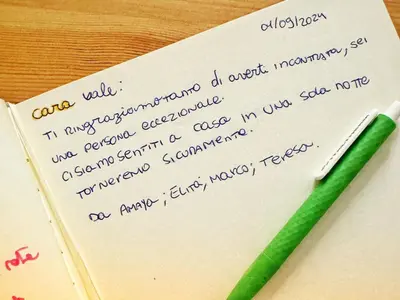 01/09/2024
cara vale:
TI RINGRAZIAMO TANTO di averti INCONTRATA, SEI
UNA PERSONA ECCEZIONALE.
CI SIAMO SENTITI A CASA IN UNA SOLA NOTTE
TORNEREMO SICURAMENTE.
DA AMAYA; ELITÀ; MARCO; TERESA.